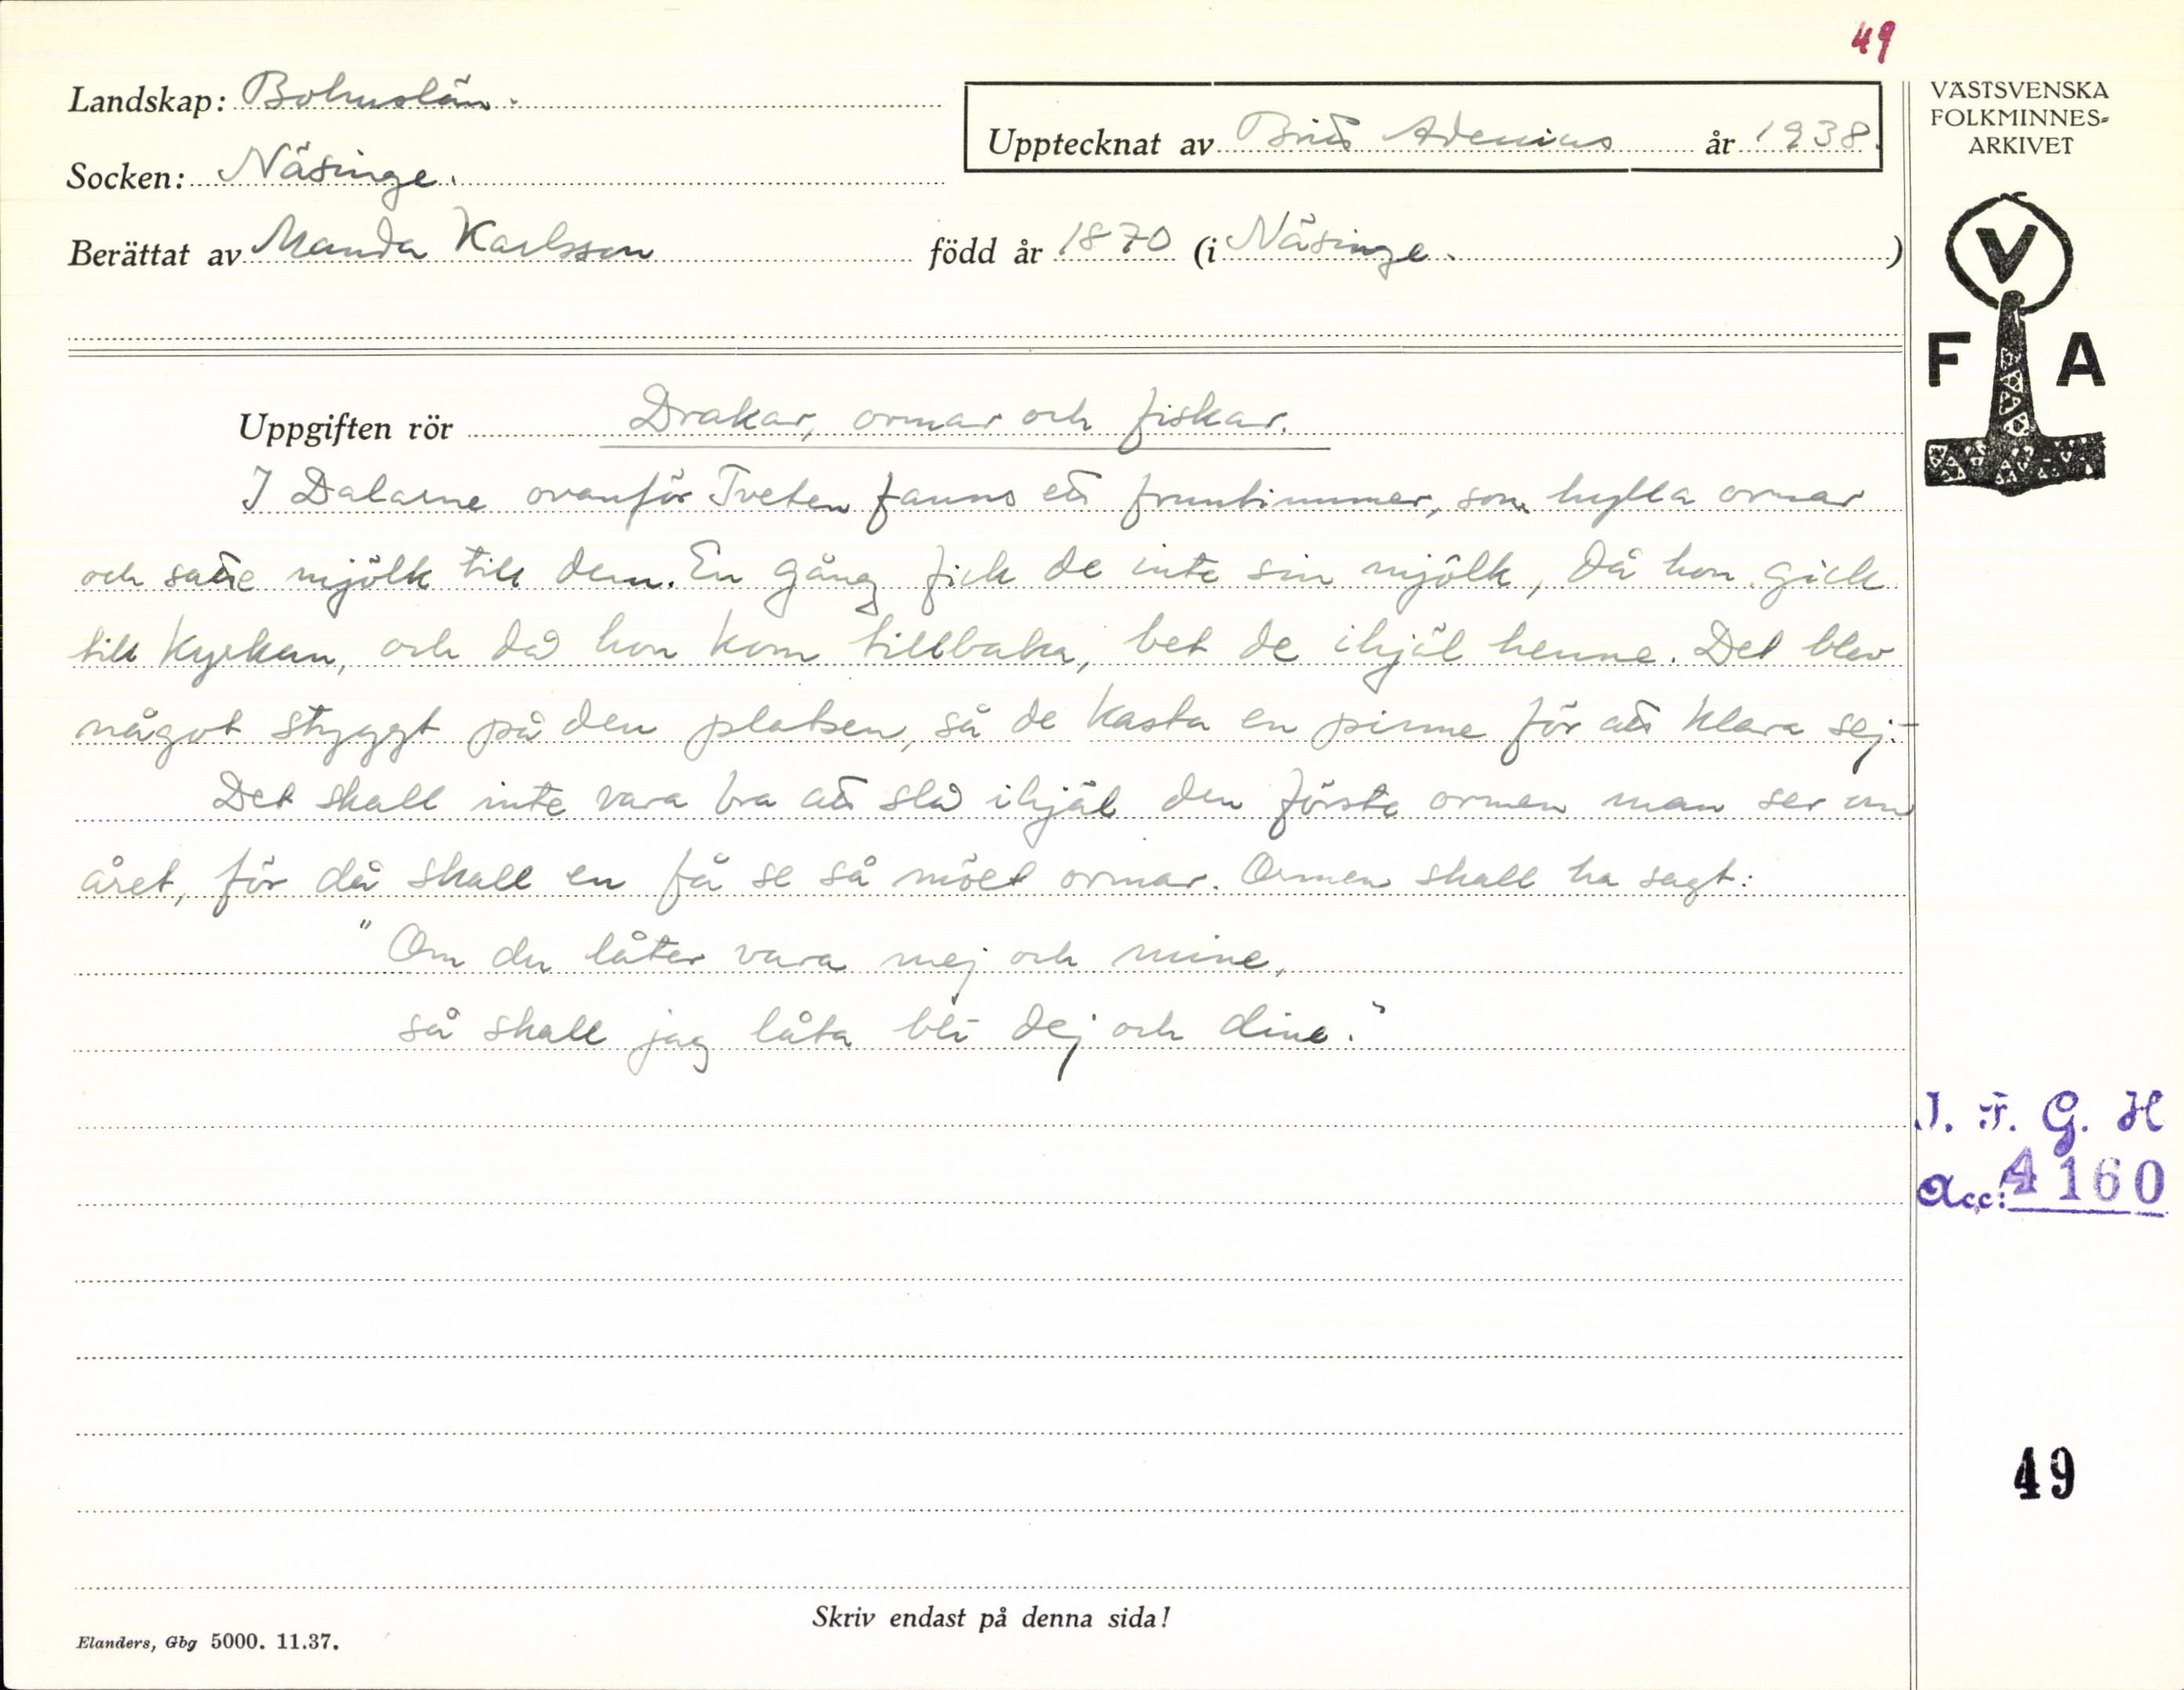 49
Landskap: Bohuslän.
Upptecknat av Britt Adenius år 1938.
VÄSTSVENSKA
FOLKMINNES-
ARKIVET
Socken: Näsinge.
Berättat av Manda Karlsson född år 1870 (i Näsinge.)
V
F A
Uppgiften rör Drakar, ormar och fiskar.
I Dalarne ovanför Tveten fanns ett fruntimmer, som hylla ormar
och satte mjölk till dem. En gång fick de inte sin mjölk, då hon gick
till kyrkan, och då hon kom tillbaka, bet de ihjäl henne. Det blev
något styggt på den platsen, så de kasta en pinne för att klara sej.-
Det skall inte vara bra att slå ihjäl den förste ormen man ser om
året, för då skall en få se så möet ormar. Ormen skall ha sagt:
"Om du låter vara mej och mine,
så skall jag låta bli dej och dine."
I. F. G. H
Acc: 4160
49
Skriv endast på denna sida!
Elanders, Gbg 5000. 11.37.